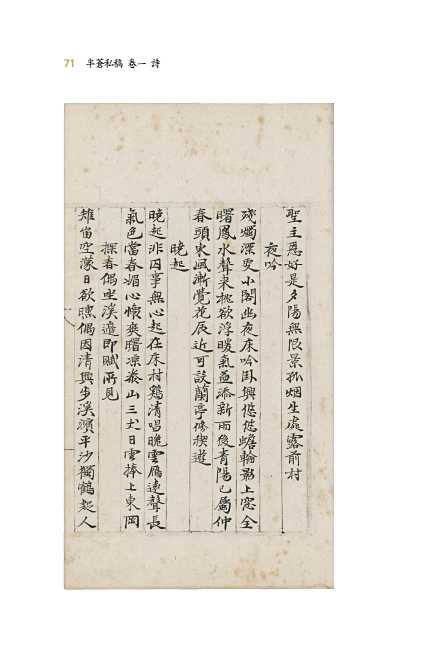 71 半蒼私稿 卷一 詩
聖主恩好是夕陽無限景孤烟生處露前村
夜吟
殘燭深更小閣幽夜床吟臥興悠悠蟾輪影上窓全
曙鳳水聲來枕欲浮暖氣益添新雨後青陽已屬仲
春頭東風漸覺花辰近可談蘭亭修禊遊
曉起
曉起非因事無心起在床村鷄清唱晚雲鴈遠聲長
氣色當春媚心懷爽曙凉泰山三丈日雲捧上東岡
探春偶坐溪邊即賦所見
雉留空濛日欲曛偶因清興步溪濱平沙獨鶴起人